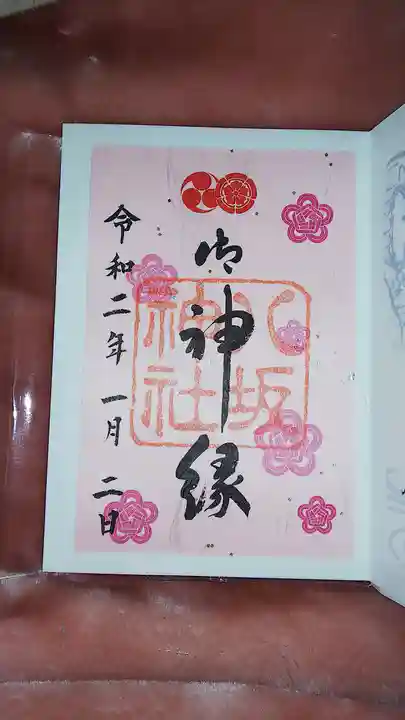 御神縁
八坂
神社
令和二年一月二日